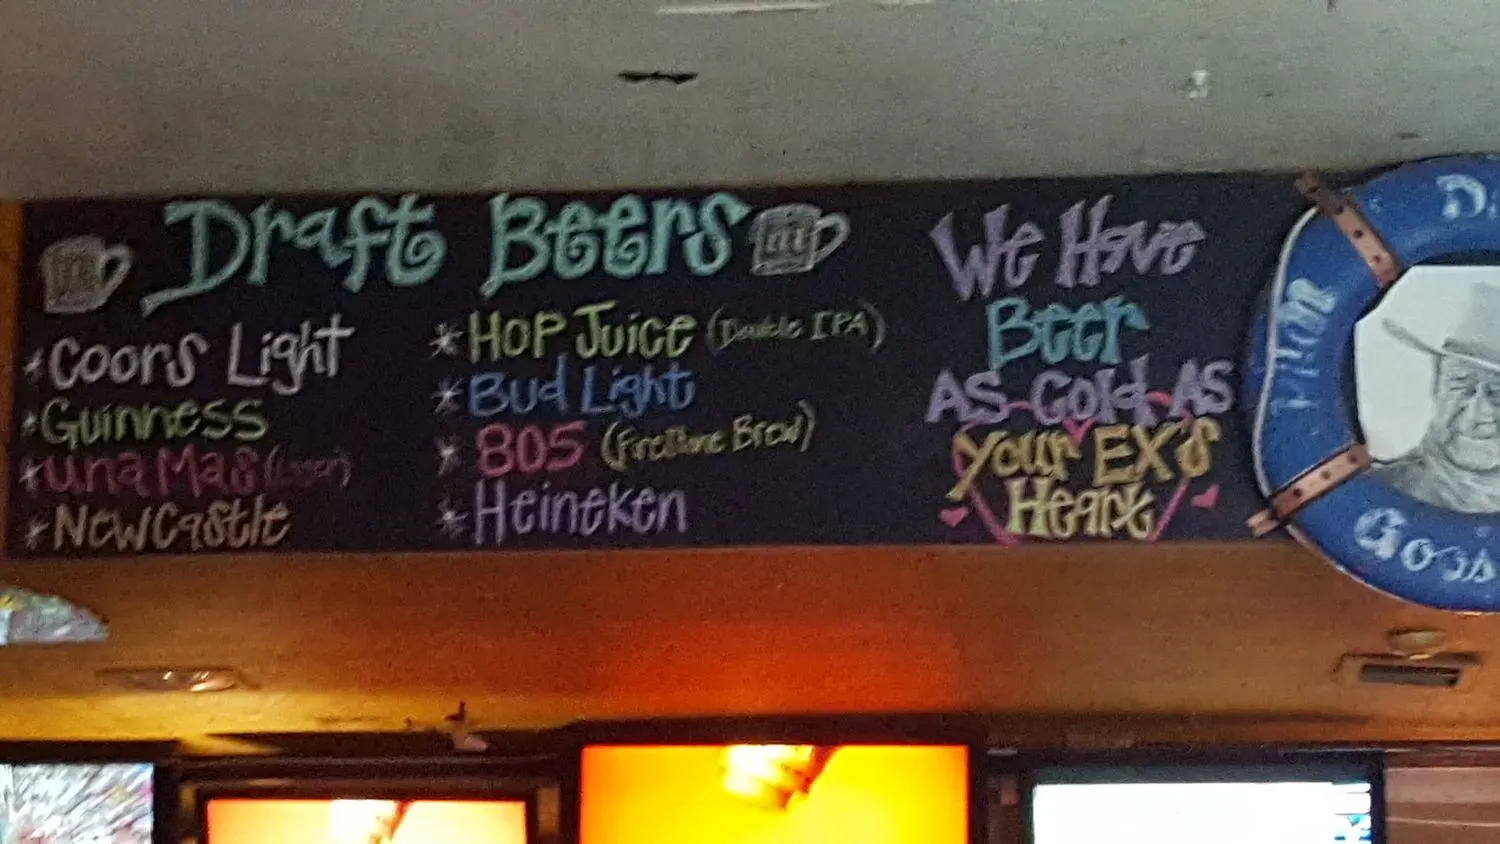 Draft Beers
*Coors Light
*Guinness
*Una Mas (Lager)
*NewCastle
*Hop Juice (Double IPA)
*Bud Light
*805 (Firestone Brew)
*Heineken
We Have
Beer
As Cold As
Your Ex's
Heart